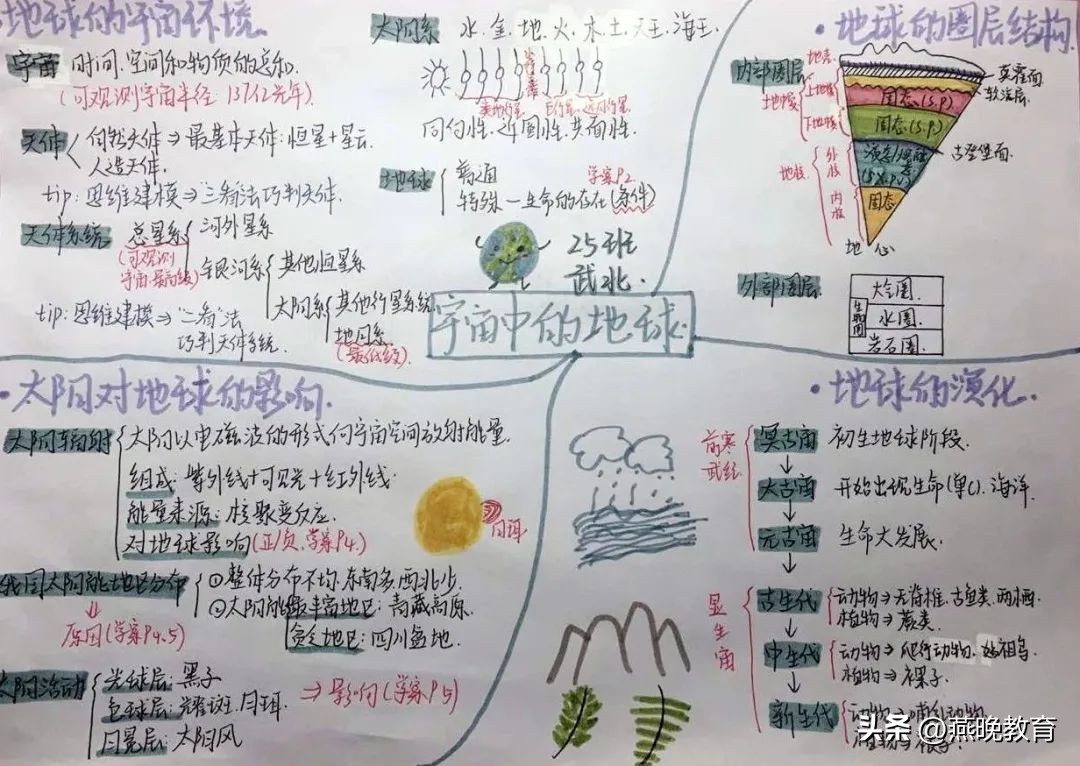 地球的宇宙环境.
宇宙 时间.空间和物质的总和.
(可观测宇宙半径:137亿光年).
天体
自然天体⇒最基本天体:恒星+星云.
人造天体.
tip:思维建模⇒"三看"法巧判天体.
天体系统
总星系
(可观测宇宙.最高级)
河外星系
银河系
其他恒星系
太阳系
其他行星系统
地月系
(最低级).
tip:思维建模⇒"二看"法
巧判天体系统.
太阳系 水.金.地.火.木.土.天王.海王.
类地行星 巨行星 远日行星
同向性.近圆性.共面性.
地球
普通
特殊—生命的存在(条件)
学案P2.
25班
武北.
宇宙中的地球.
·地球的圈层结构.
内部圈层
地壳
上地幔
地幔
下地幔
地核
外核
内核
固态(S.P.)
固态(S.P.)
固态
地心
莫霍面
软流层.
古登堡面.
外部圈层
大气圈.
生物圈
水圈.
岩石圈.
·太阳对地球的影响.
太阳辐射
太阳以电磁波的形式向宇宙空间放射能量.
组成:紫外线+可见光+红外线.
能量来源:核聚变反应.
对地球影响(正/负,学案P4.)
日珥
我国太阳能地区分布
①整体分布不均.东南多.西北少.
②太阳能最丰富地区:青藏高原.
贫乏地区:四川盆地.
原因(学案P4.5)
太阳活动
光球层:黑子
色球层:耀斑.日珥.
日冕层:太阳风
⇒影响(学案P5)
·地球的演化.
前寒武纪
冥古宙 初生地球阶段.
太古宙 开始出现生命(单C).海洋.
元古宙 生命大发展.
显生宙
古生代
动物⇒无脊椎.古鱼类.两栖.
植物⇒蕨类.
中生代
动物⇒爬行动物.始祖鸟.
植物⇒裸子.
新生代
动物⇒哺乳动物.
头条@燕晚教育